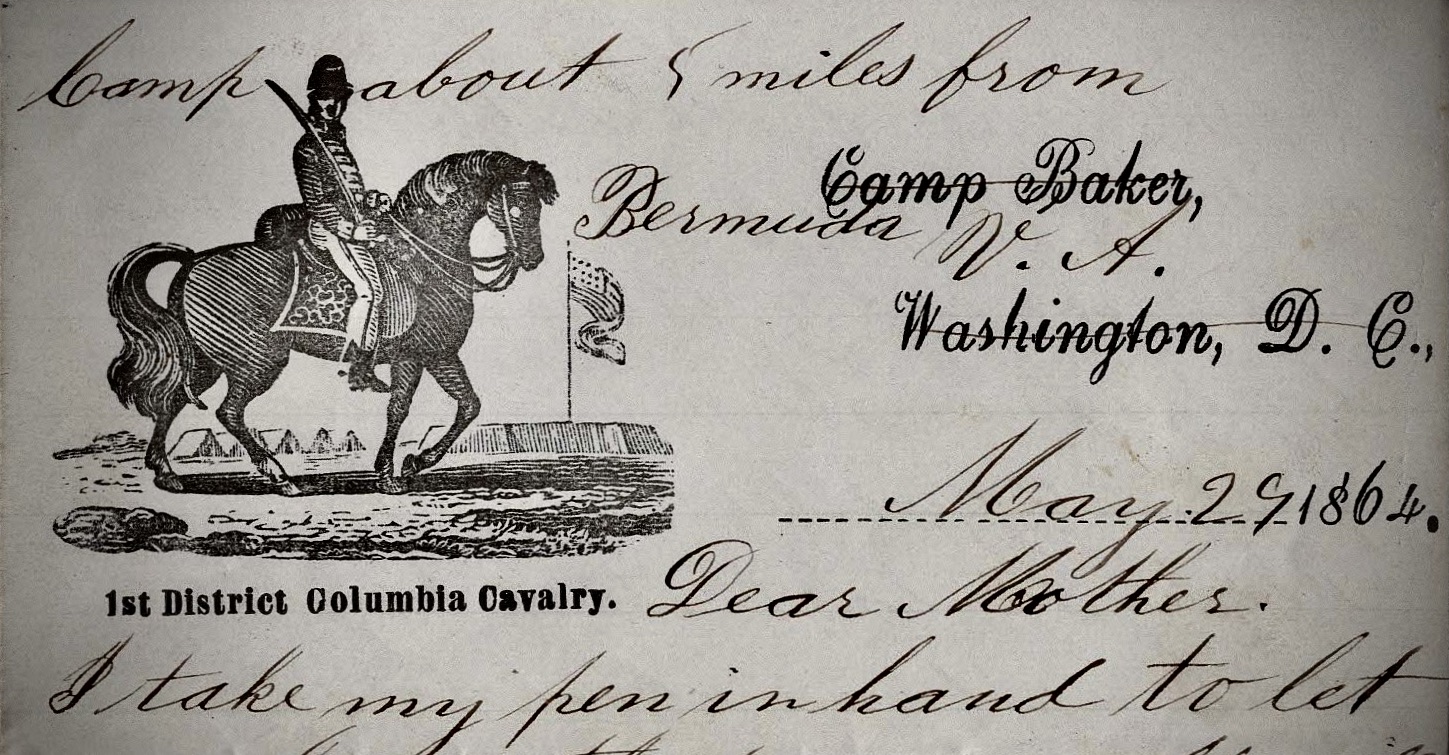 Camp about 5 miles from
Camp Baker,
Bermuda V. A.
Washington, D. C.,
May 29 1864.
1st District Columbia Cavalry.
Dear Mother.
I take my pen in hand to let